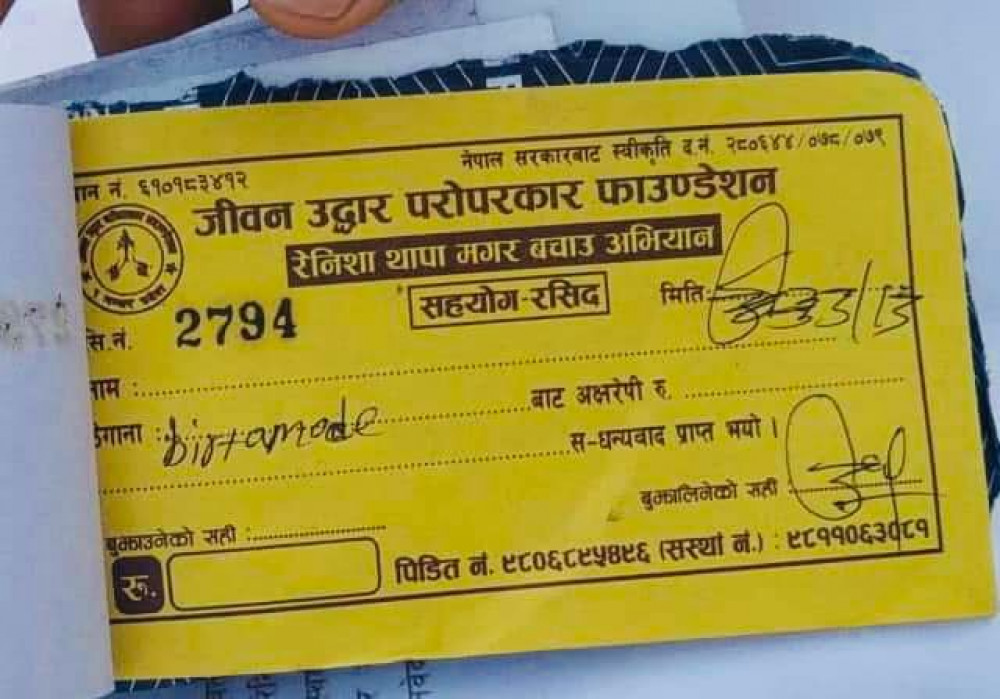 नेपाल सरकारबाट स्वीकृति द.नं. २८०६४४/०७८/०७९
पान नं. ६१०१८३४१२
जीवन उद्धार परोपरकार फाउण्डेशन
रेनिशा थापा मगर बचाउ अभियान
सहयोग-रसिद
मिति:
सि.नं. 2794
नाम :
बाट अक्षरेपी रु.
ठेगाना : birtamode
स-धन्यवाद प्राप्त भयो ।
बुझालिनेको सही
बुझाउनेको सही :
रू.
पिडित नं. ९८०६८९५४९६ (सस्थां नं.) : ९८११०६३०८१